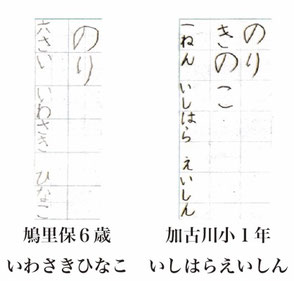 のり
六さい いわさき ひなこ
鳩里保６歳
いわさきひなこ
のり
きのこ
一ねん いしはら えいしん
加古川小１年
いしはらえいしん